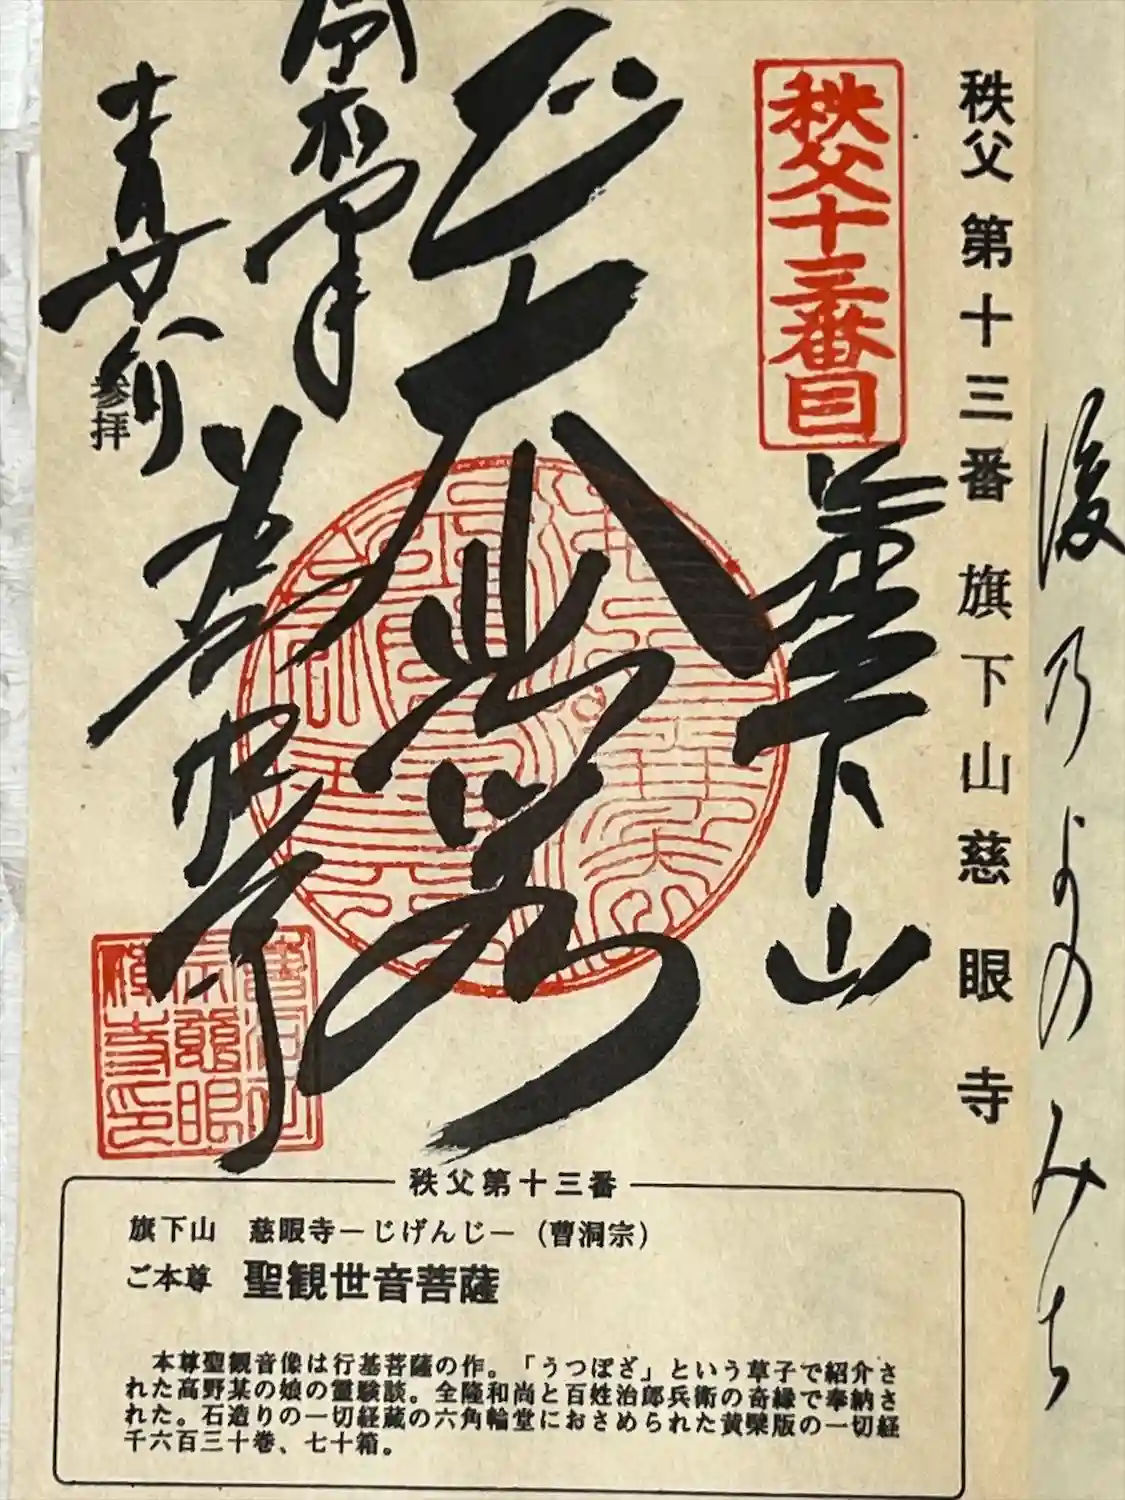 後乃よのみち
秩父第十三番 旗下山慈眼寺
秩父十三番目
旗下山
大悲殿
慈眼寺
参拝
秩父第十三番
旗下山 慈眼寺－じげんじ－（曹洞宗）
ご本尊 聖観世音菩薩
本尊聖観音像は行基菩薩の作。「うつぼざ」という草子で紹介さ
れた高野某の娘の霊験談。全隆和尚と百姓治郎兵衛の奇縁で奉納さ
れた。石造りの一切経蔵の六角輪堂におさめられた黄檗版の一切経
千六百三十巻、七十箱。